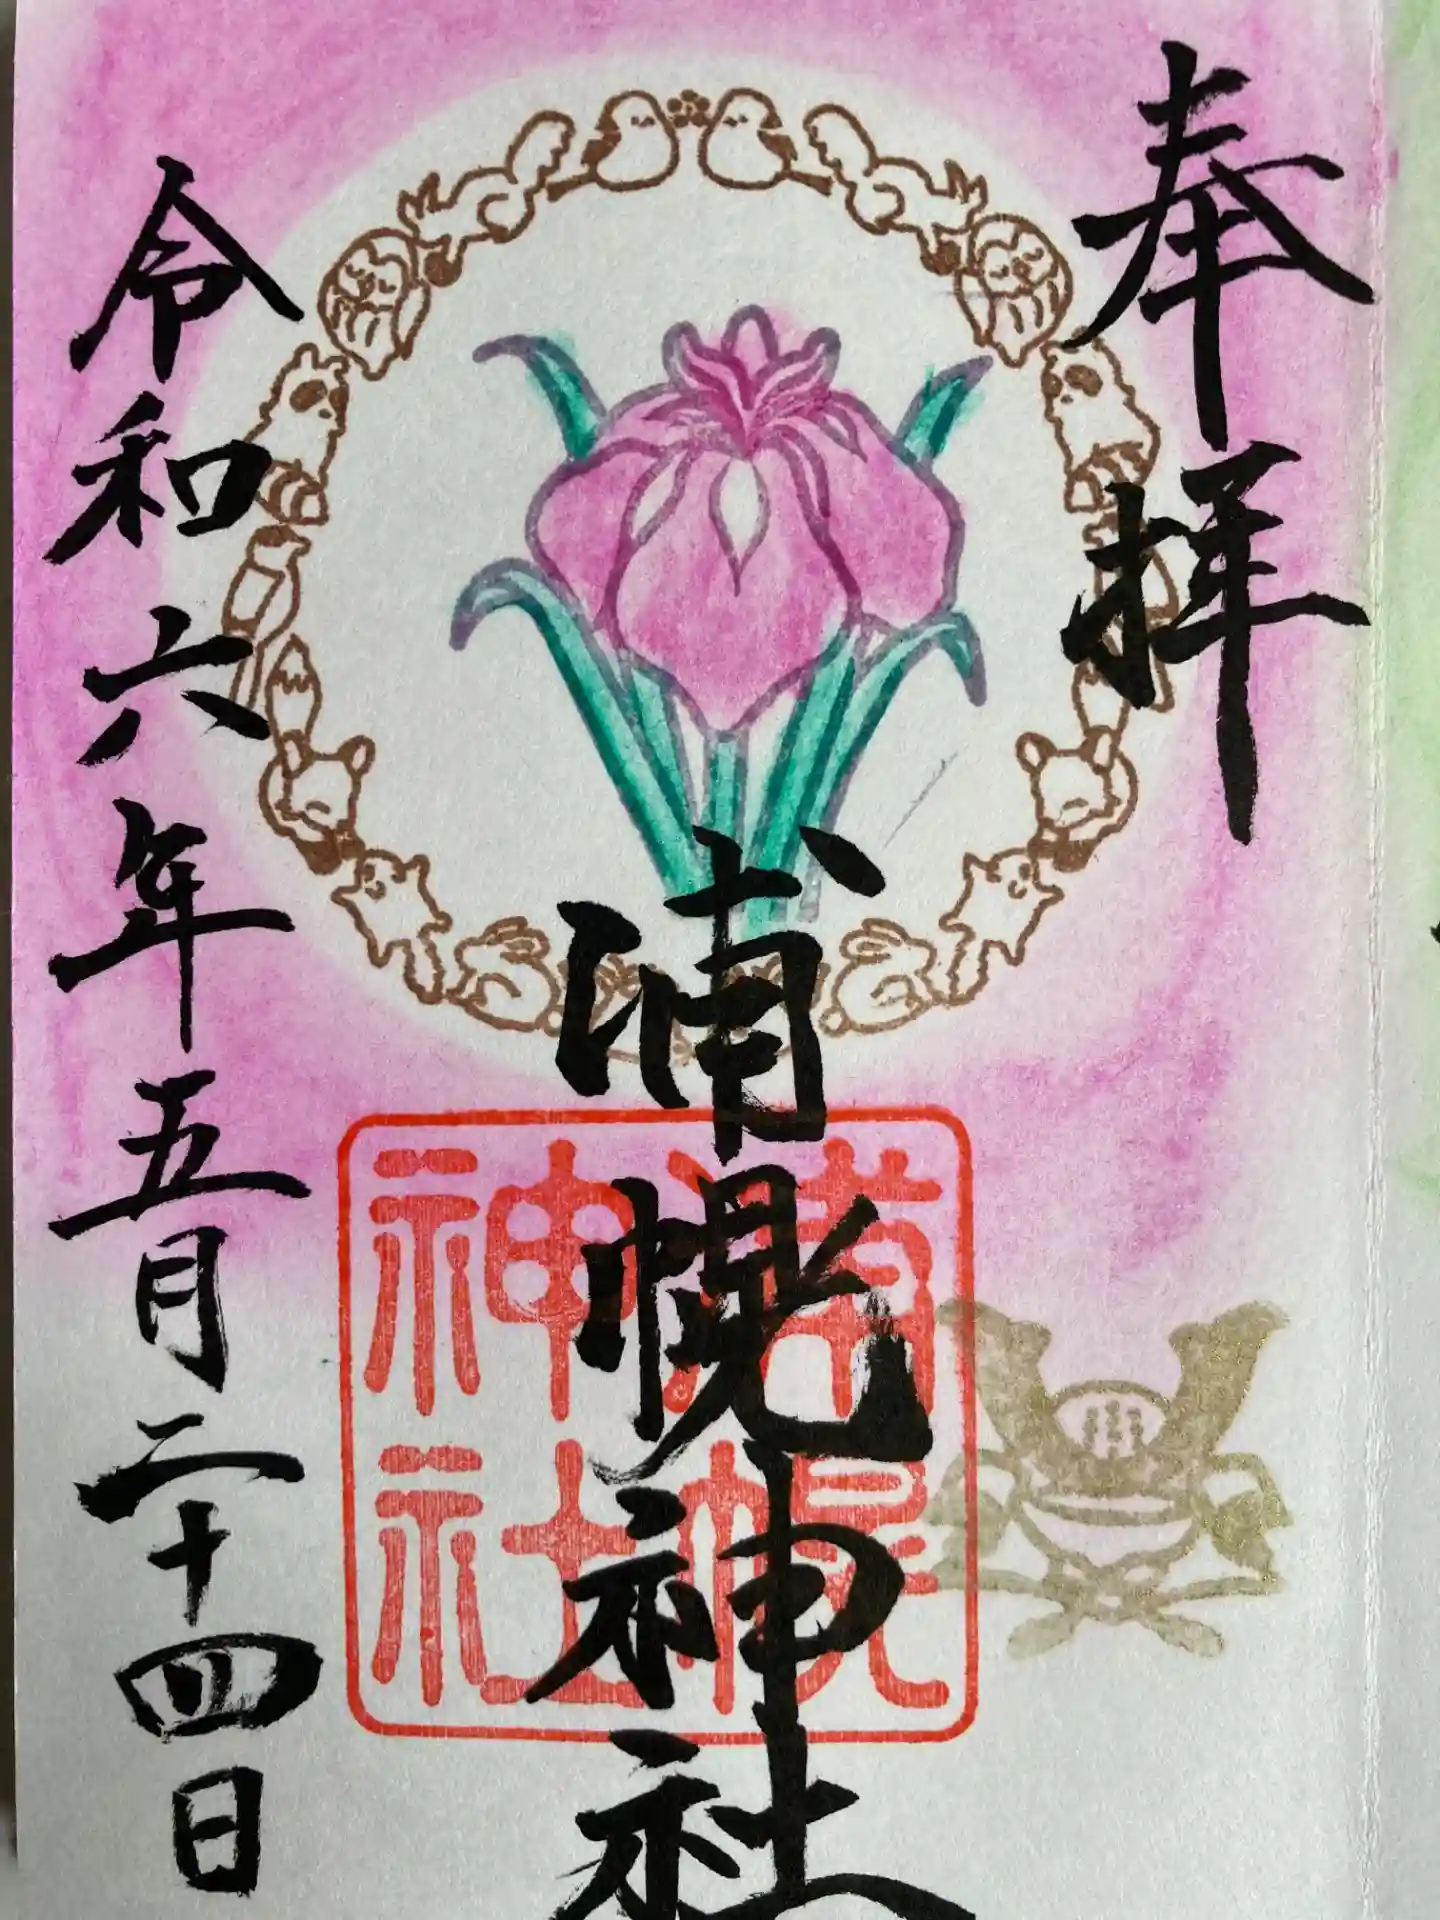 奉拝
浦幌神社
浦幌
神社
令和六年五月二十四日